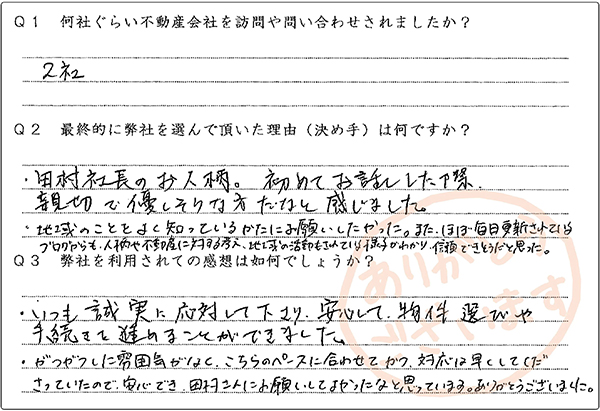 Q1 何社ぐらい不動産会社を訪問や問い合わせされましたか?
2社
Q2 最終的に弊社を選んで頂いた理由（決め手）は何ですか?
・田村社長のお人柄。初めてお話しした際、
親切で優しそうな方だなと感じました。
・地域のことをよく知っているかたにお願いしたかった。また、ほぼ毎日更新されている
ブログからも、人柄や不動産に対する考え、地域の活動もされている様子がわかり、信頼できそうだと思った。
Q3 弊社を利用されての感想は如何でしょうか?
・いつも誠実に応対して下さり、安心して、物件選びや
手続きを進めることができました。
・がつがつした雰囲気がなく、こちらのペースに合わせてかつ、対応は早くしてくだ
さっていたので、安心でき、田村さんにお願いしてよかったなと思っています。ありがとうございました。
ありがとう
ございます